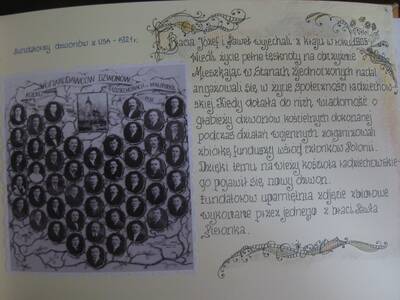 Fundatorzy dzwonów z USA - 1921r.
FUNDATORÓW DZWONÓW
Bracia Józef i Paweł wyjechali z kraju w roku 1905
Wiedli życie pełne tęsknoty na obczyźnie
Mieszkając w Stanach Zjednoczonych nadal
angażowali się w życie społeczności radziechow-
skiej. Kiedy dotarła do nich wiadomość o
grabieży dzwonów kościelnych dokonanej
podczas działań wojennych zorganizowali
zbiórkę funduszy wśród członków Polonii.
Dzięki temu na wieży kościoła radziechowskie-
go pojawił się nowy dzwon.
Fundatorów upamiętnia zdjęcie zbiorowe
wykonane przez jednego z braci Pawła